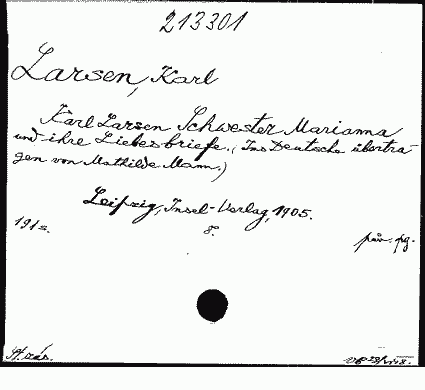 213301
Larsen, Karl
Karl Larsen Schwester Marianna
und ihre Liebesbriefe. (Ins Deutsche übertra-
gen von Mathilde Mann.)
Leipzig, Insel-Verlag, 1905.
8.
pár. pg.